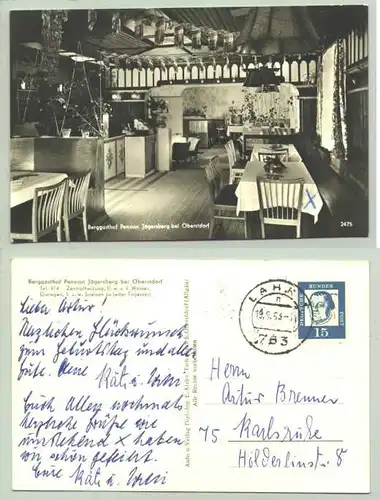 Berggasthof Pension Jägersberg bei Oberstdorf
2475
Berggasthof Pension Jägersberg bei Oberstdorf
Tel. 614 Zentralheizung, fl. w. u. k. Wasser,
Garagen, u. Speisen zu jeder Tageszeit
Lieber Artur!
Herzlichen Glückwunsch
zum Geburtstag und alles
Gute. Deine
Käti u. Willi
Euch Allen nochmals
herzliche Grüße wie
umstehend X haben
wir schön gefeiert.
Eure Käti u. Willi
LAHR
783
DEUTSCHE BUNDESPOST
15
Herrn
Artur Brenner
75 Karlsruhe
Hölderlinstr. 8